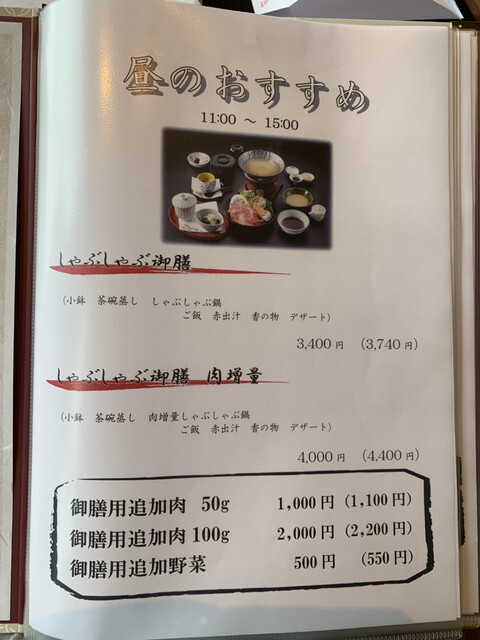 昼のおすすめ
11:00 ～ 15:00
しゃぶしゃぶ御膳
（小鉢 茶碗蒸し しゃぶしゃぶ鍋
ご飯 赤出汁 香の物 デザート）
3,400 円 （3,740 円）
しゃぶしゃぶ御膳 肉増量
（小鉢 茶碗蒸し 肉増量しゃぶしゃぶ鍋
ご飯 赤出汁 香の物 デザート）
4,000 円 （4,400 円）
御膳用追加肉 50g 1,000 円 （1,100 円）
御膳用追加肉 100g 2,000 円 （2,200 円）
御膳用追加野菜 500 円 （550 円）